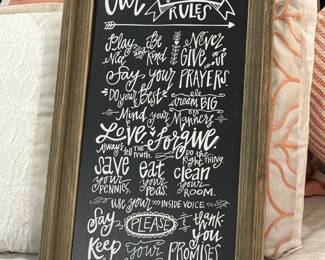 Our
RULES
Play Nice
and Be Kind
Never GIVE up
Say your PRAYERS
Do your Best
dream BIG
Mind your Manners
Love
Forgive
Always tell the TRUTH.
Do the Right THING
save your PENNIES.
eat your PEAS.
clean your ROOM.
use your INSIDE VOICE
Say PLEASE
and thank You
Keep your PROMISES